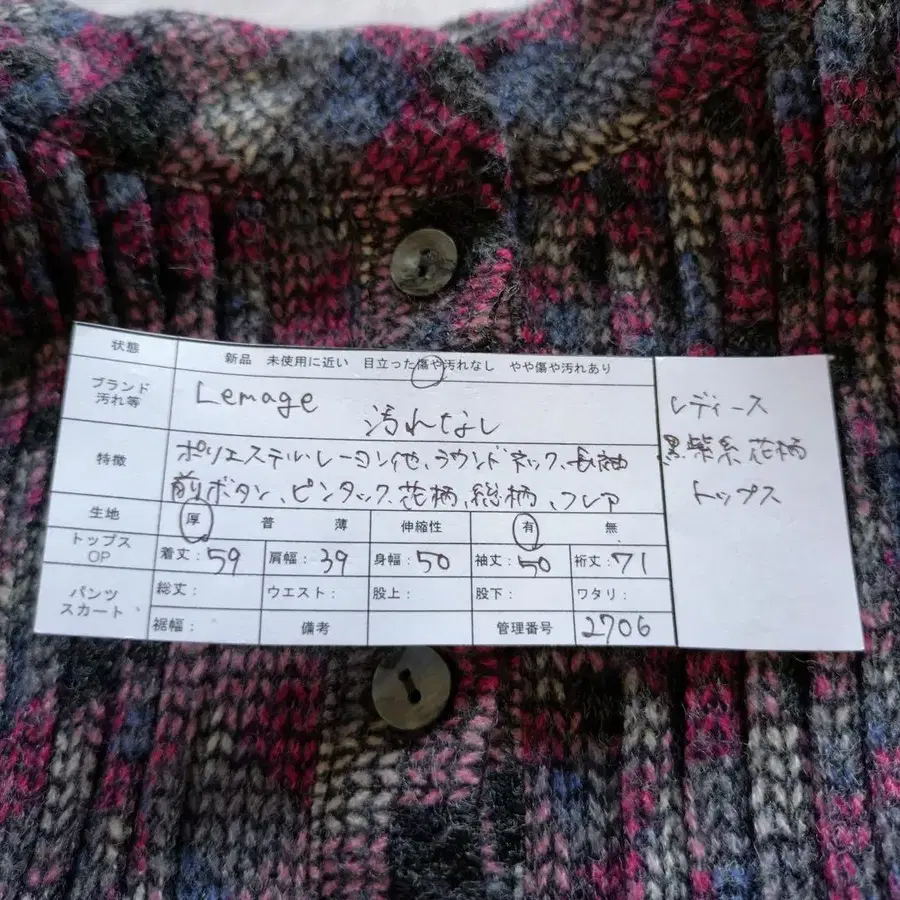 状態
新品 未使用に近い 目立った傷や汚れなし やや傷や汚れあり
ブランド
汚れ等
Lemage
汚れなし
特徴
ポリエステル・レーヨン他、ラウンドネック、長袖
前ボタン、ピンタック、花柄、総柄、フレア
生地
厚 普 薄 伸縮性 有 無
トップス
OP
着丈:59 肩幅:39 身幅:50 袖丈:50 裄丈:71
パンツ
スカート
総丈: ウエスト: 股上: 股下: ワタリ:
裾幅: 備考 管理番号 2706
レディース
黒紫系花柄
トップス